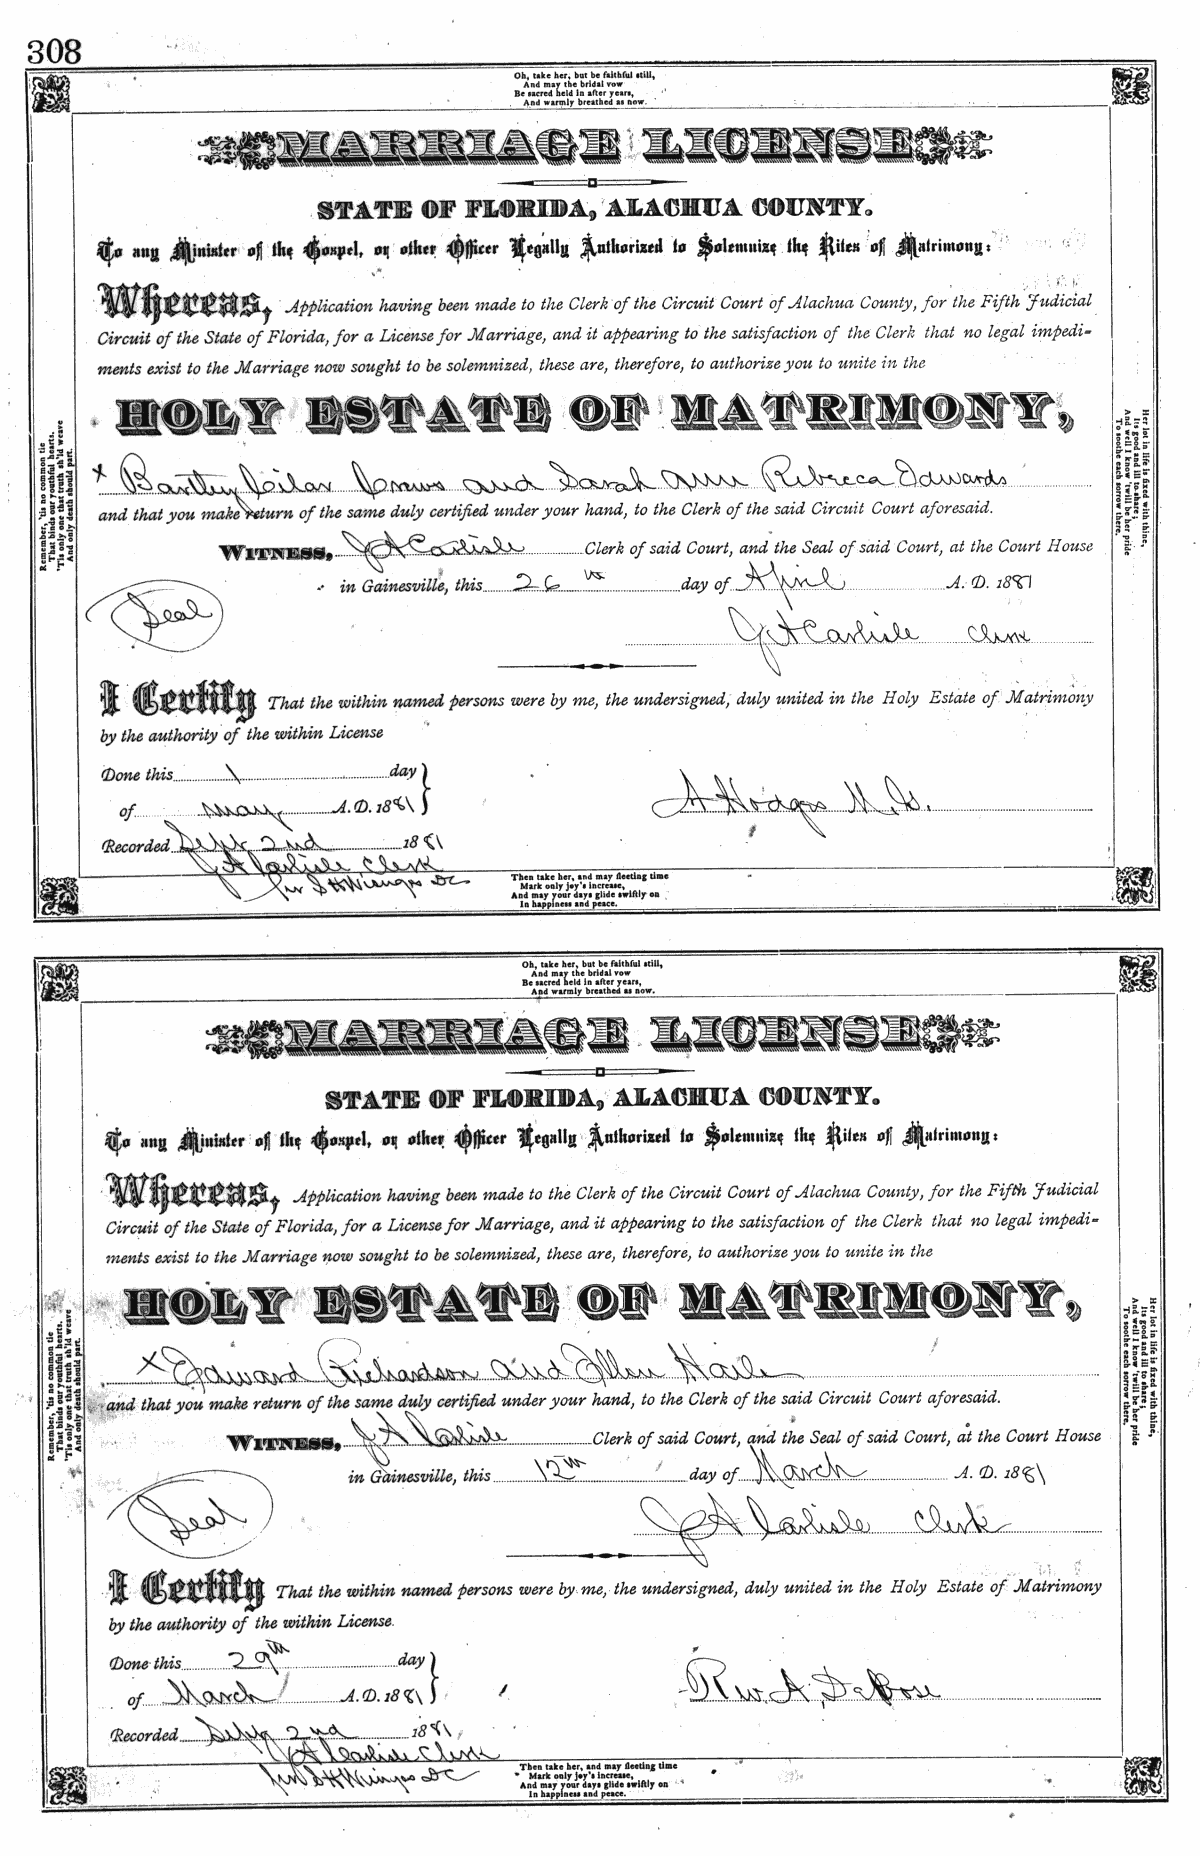 308
Oh, take her, but be faithful still,
And may the bridal vow
Be sacred held in after years,
And warmly breathed as now.
MARRIAGE LICENSE
STATE OF FLORIDA, ALACHUA COUNTY.
To any Minister of the Gospel, or other Officer Legally Authorized to Solemnize the Rites of Matrimony:
Whereas, Application having been made to the Clerk of the Circuit Court of Alachua County, for the Fifth Judicial
Circuit of the State of Florida, for a License for Marriage, and it appearing to the satisfaction of the Clerk that no legal impedi-
ments exist to the Marriage now sought to be solemnized, these are, therefore, to authorize you to unite in the
HOLY ESTATE OF MATRIMONY,
x Bartley Crews and Sarah Ann Rebecca Edwards
and that you make return of the same duly certified under your hand, to the Clerk of the said Circuit Court aforesaid.
WITNESS, J A Carlisle Clerk of said Court, and the Seal of said Court, at the Court House
in Gainesville, this 26th day of April A. D. 1881
Seal
J A Carlisle Clerk
I Certify That the within named persons were by me, the undersigned, duly united in the Holy Estate of Matrimony
by the authority of the within License
Done this 1 day
of May A.D. 1881
A Hodges M.G.
Recorded Sept 2nd 1881
J A Carlisle Clerk
DC
Remember, 'tis no common tie
That binds our youthful hearts.
'Tis only one that truth sh'ld weave
And only death should part.
Her lot in life is fixed with thine,
Its good and ill to share;
And well I know 'twill be her pride
To soothe each sorrow there.
Then take her, and may fleeting time
Mark only joy's increase,
And may your days glide swiftly on
In happiness and peace.
Oh, take her, but be faithful still,
And may the bridal vow
Be sacred held in after years,
And warmly breathed as now.
MARRIAGE LICENSE
STATE OF FLORIDA, ALACHUA COUNTY.
To any Minister of the Gospel, or other Officer Legally Authorized to Solemnize the Rites of Matrimony:
Whereas, Application having been made to the Clerk of the Circuit Court of Alachua County, for the Fifth Judicial
Circuit of the State of Florida, for a License for Marriage, and it appearing to the satisfaction of the Clerk that no legal impedi-
ments exist to the Marriage now sought to be solemnized, these are, therefore, to authorize you to unite in the
HOLY ESTATE OF MATRIMONY,
x Edward Richardson and Ellen Haile
and that you make return of the same duly certified under your hand, to the Clerk of the said Circuit Court aforesaid.
WITNESS, J A Carlisle Clerk of said Court, and the Seal of said Court, at the Court House
in Gainesville, this 12th day of March A. D. 1881
Seal
J A Carlisle Clerk
I Certify That the within named persons were by me, the undersigned, duly united in the Holy Estate of Matrimony
by the authority of the within License.
Done this 29th day
of March A.D. 1881
Rev. A. DeBose
Recorded Sept 2nd 1881
J A Carlisle Clerk
DC
Remember, 'tis no common tie
That binds our youthful hearts.
'Tis only one that truth sh'ld weave
And only death should part.
Her lot in life is fixed with thine,
Its good and ill to share;
And well I know 'twill be her pride
To soothe each sorrow there.
Then take her, and may fleeting time
Mark only joy's increase,
And may your days glide swiftly on
In happiness and peace.